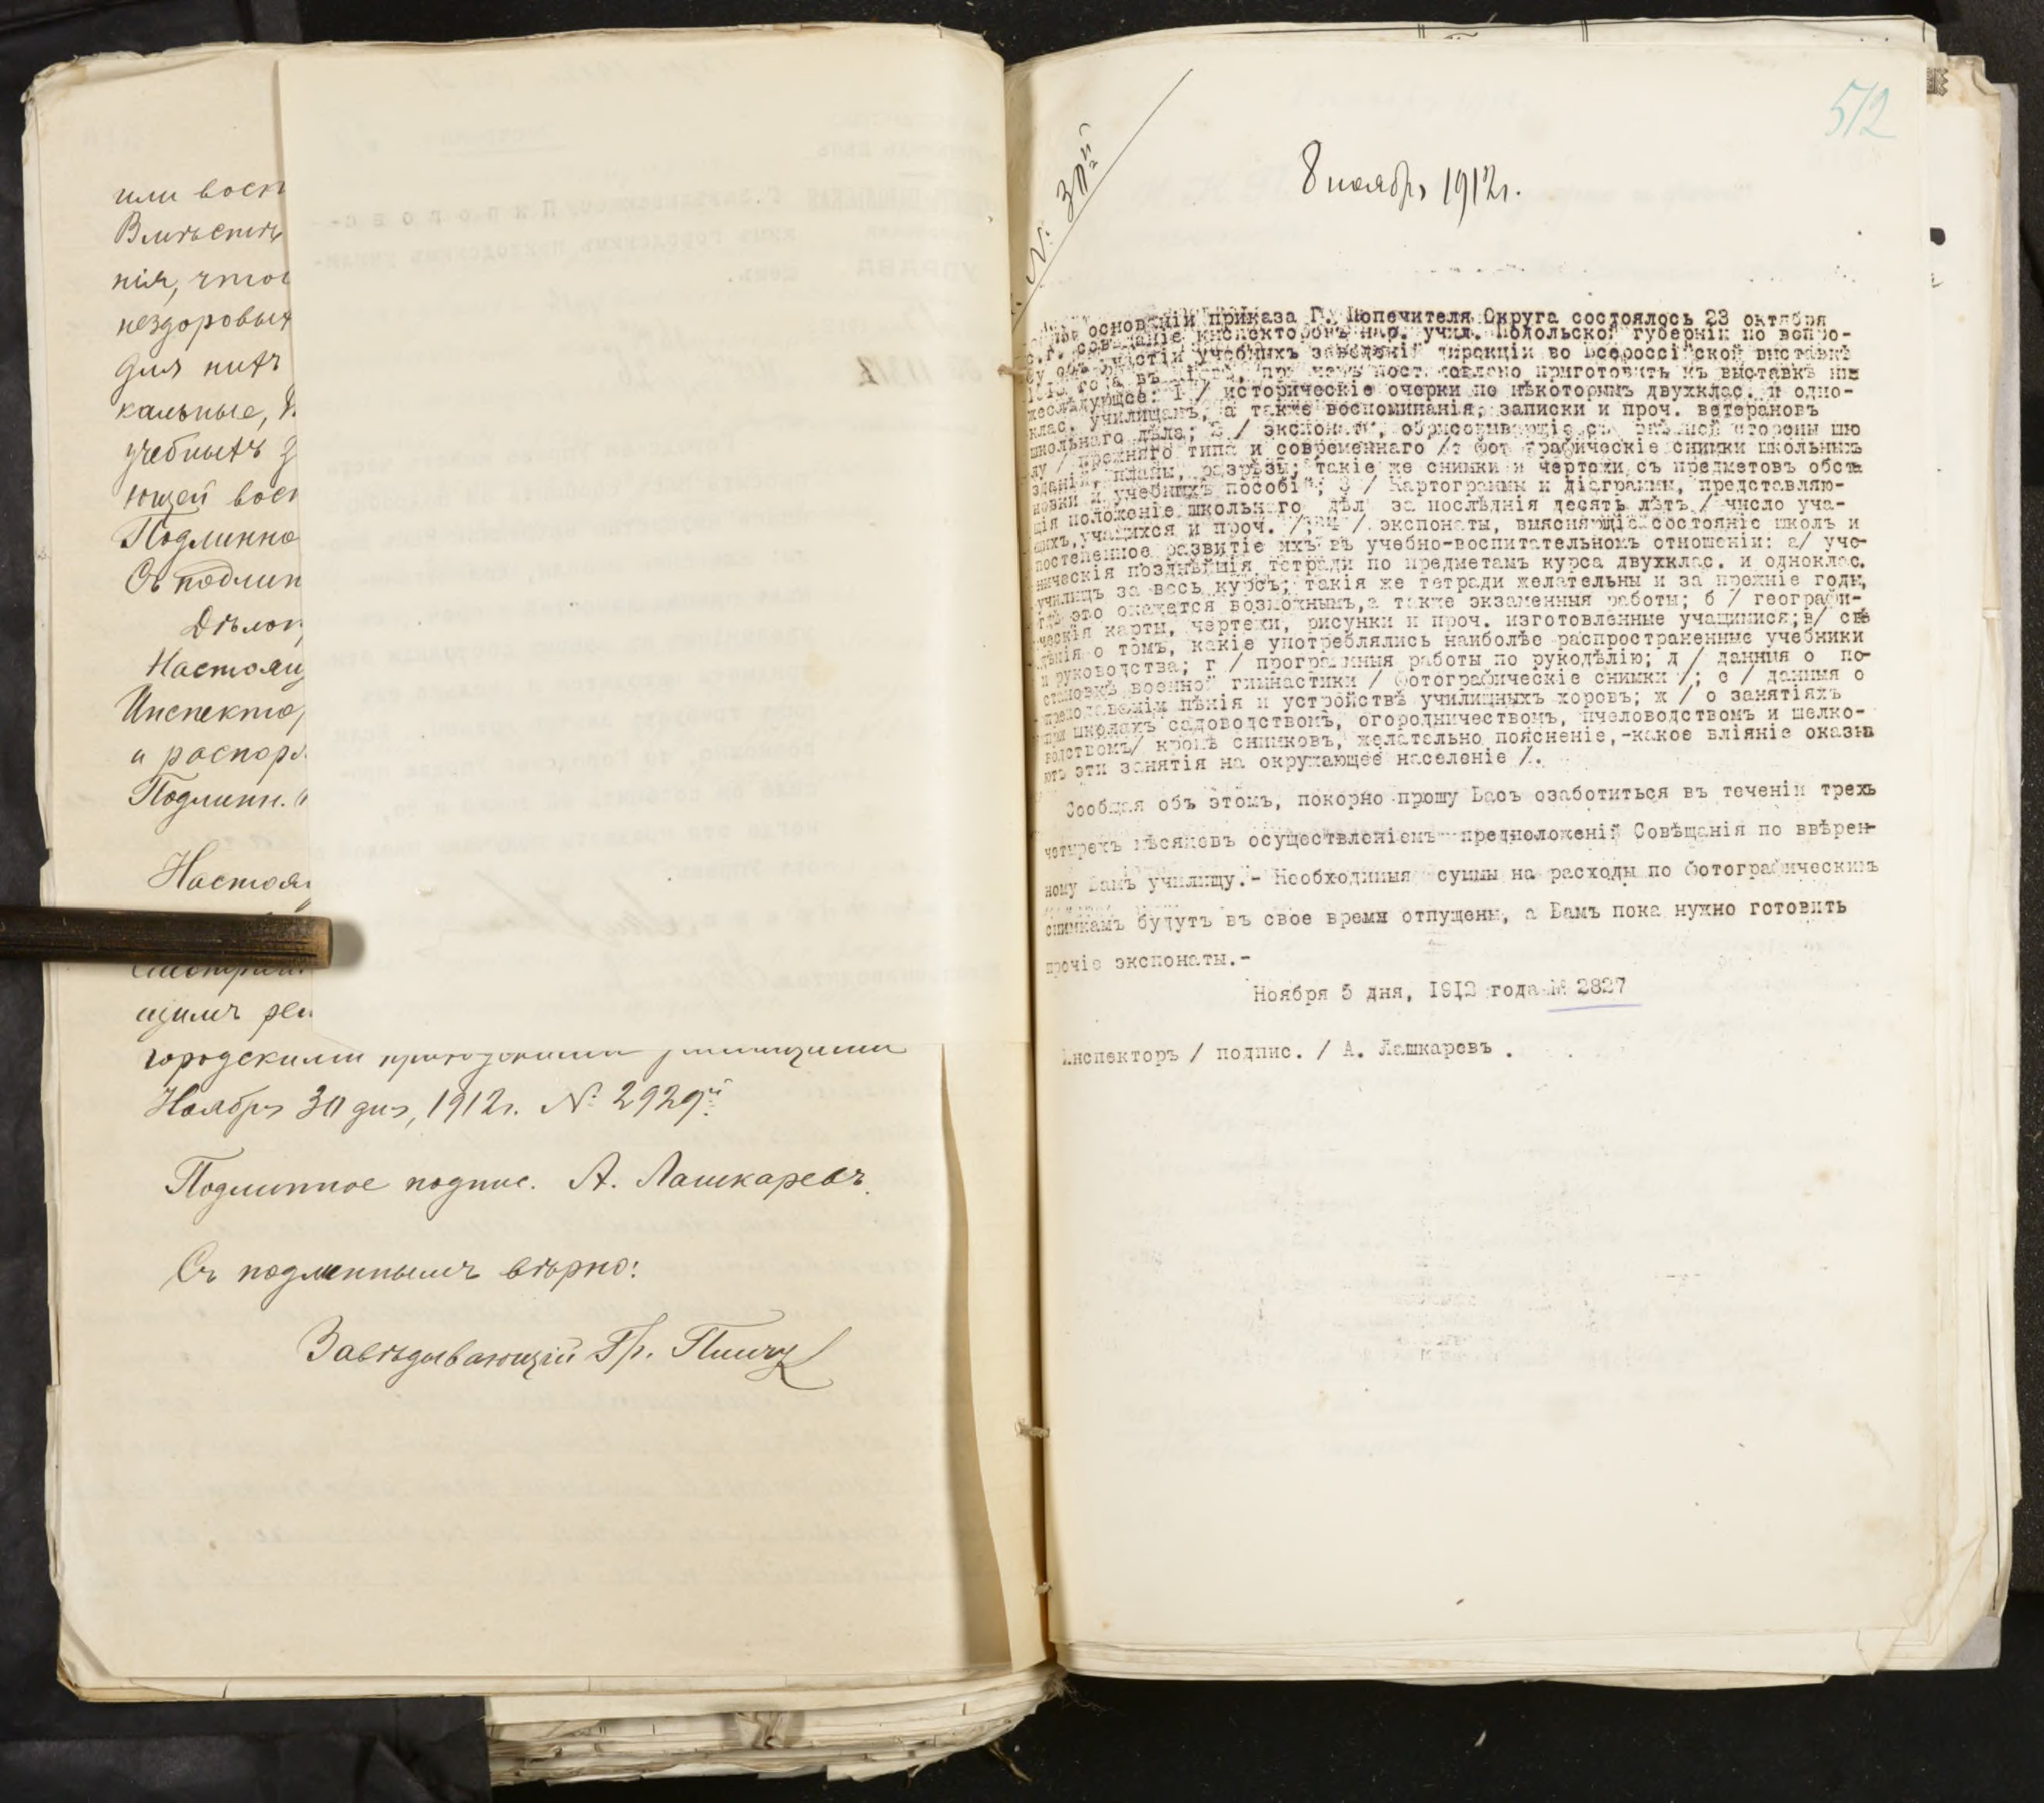 или восп
Вмѣстѣ
нія, чтоб
нездоровых
для нихъ
кальные,
учебныхъ з
ющей восп
Подлинно
Съ подлин
Дѣлоп
Настоящ
Инспекто
и распор
Подлинн.
Настоя
смотрит
щимъ
городскими приходскими училищами
Ноября 30 дня, 1912 г. № 2929й.
Подлинное подпис. А. Лашкаревъ.
Съ подлиннымъ вѣрно:
Завѣдывающій Гр.
512
№
8 ноября 1912 г.
основаніи приказа Г. Попечителя Округа состоялось 23 октября
с.г. совѣщаніе инспекторовъ нар. учил. Подольской губерніи по вопро-
су объ участіи учебныхъ заведеній дирекціи во Всероссійской выставкѣ
1913 года въ при чемъ постановлено приготовить къ выставкѣ ни
жеслѣдующее: 1 / историческіе очерки по нѣкоторымъ двухклас. и одно-
клас. училищамъ, а также воспоминанія, записки и проч. ветерановъ
школьнаго дѣла; 2 / экспонаты, обрисовывающіе съ внѣшней стороны шко
лу / прежняго типа и современнаго /: фотографическіе снимки школьныхъ
зданій, планы, разрѣзы; такіе же снимки и чертежи съ предметовъ обста
новки и учебныхъ пособій; 3 / Картограммы и діаграммы, представляю-
щія положеніе школьнаго дѣла за послѣднія десять лѣтъ / число уча-
щихъ, учащихся и проч. /; 4 / экспонаты, выясняющіе состояніе школъ и
постепенное развитіе ихъ въ учебно-воспитательномъ отношеніи: а/ уче-
ническія позднѣйшія тетради по предметамъ курса двухклас. и одноклас.
училищъ за весь курсъ; такія же тетради желательны и за прежніе годы,
гдѣ это окажется возможнымъ, а также экзаменныя работы; б / географи-
ческія карты, чертежи, рисунки и проч. изготовленные учащимися; в/ свѣ
дѣнія о томъ, какіе употреблялись наиболѣе распространенные учебники
и руководства; г / программныя работы по рукодѣлію; д / данныя о по-
становкѣ военной гимнастики / фотографическіе снимки /; е / данныя о
преподаваніи пѣнія и устройствѣ училищныхъ хоровъ; ж / о занятіяхъ
при школахъ садоводствомъ, огородничествомъ, пчеловодствомъ и шелко-
водствомъ/ кромѣ снимковъ, желательно поясненіе,-какое вліяніе оказыва
ютъ эти занятія на окружающее населеніе /.
Сообщая объ этомъ, покорно прошу Васъ озаботиться въ теченіи трехъ
четырехъ мѣсяцовъ осуществленіемъ предположеній Совѣщанія по ввѣрен-
ному Вамъ училищу.- Необходимыя суммы на расходы по фотографическимъ
снимкамъ будутъ въ свое время отпущены, а Вамъ пока нужно готовить
прочіе экспонаты.-
Ноября 5 дня, 1912 года № 2827
Инспекторъ / подпис. / А. Лашкаревъ .